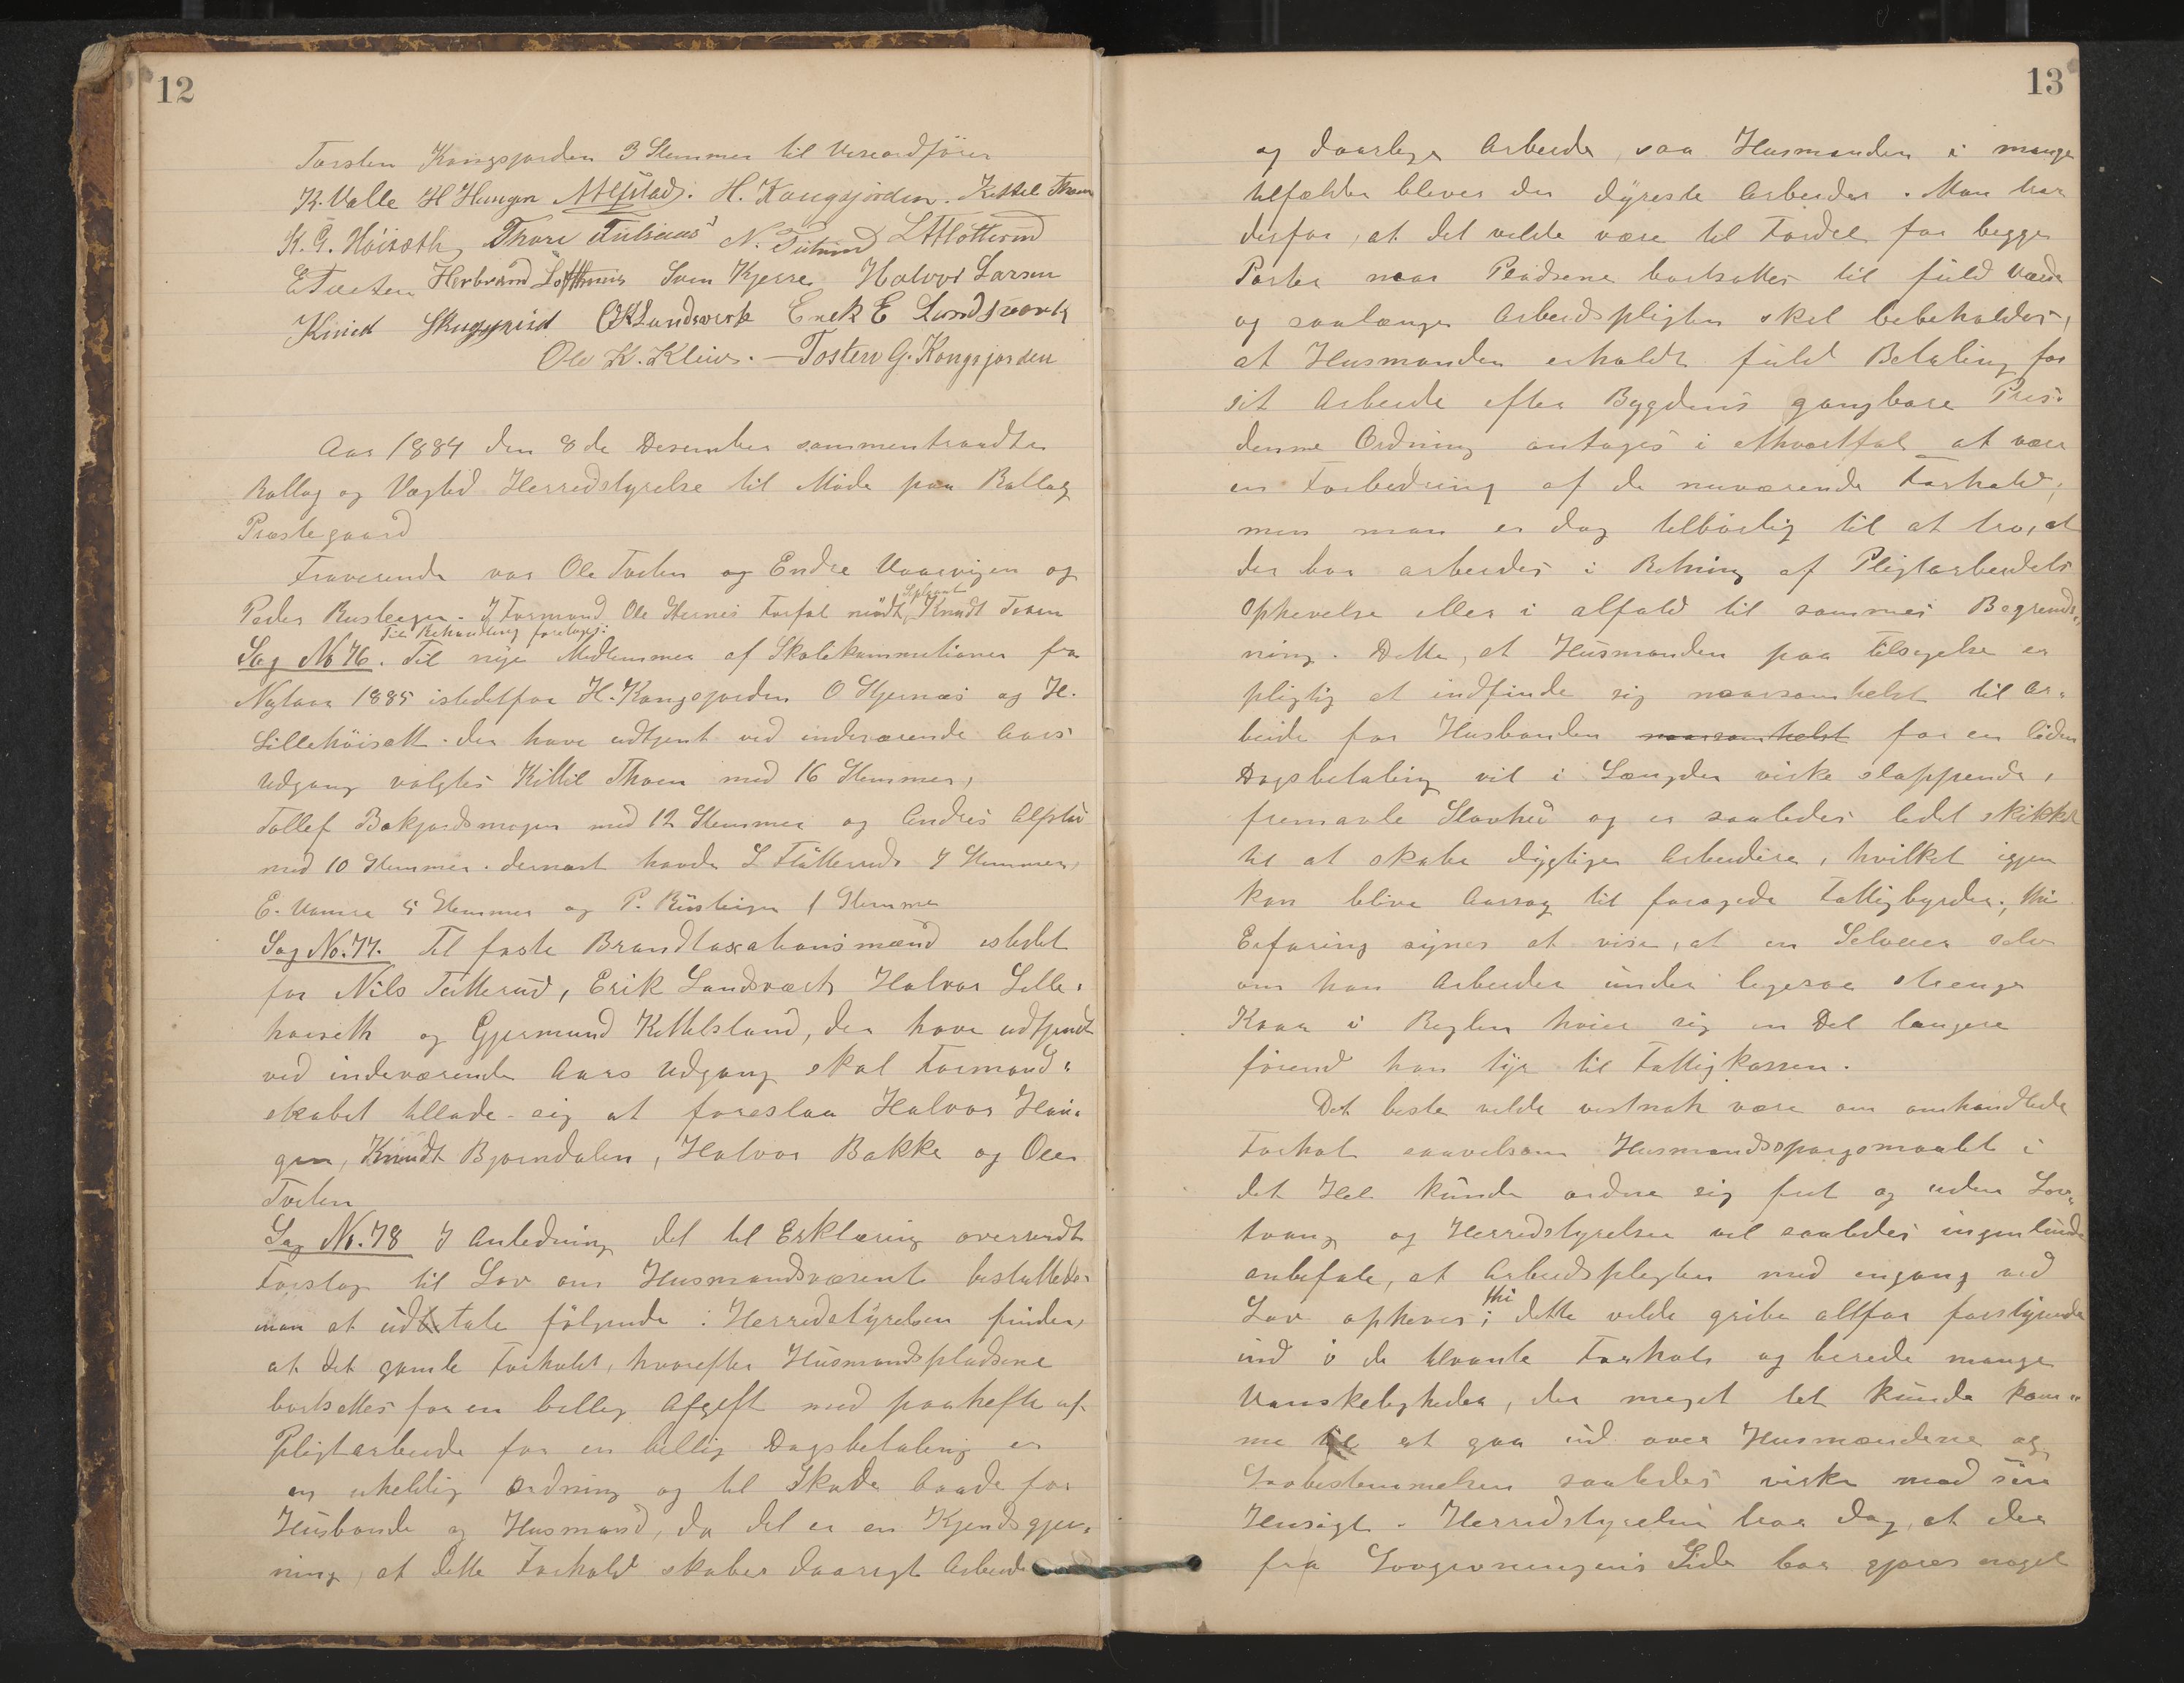 12
Torsten Kongsjorden 3 Stemmer til Viseordfører
K. Valle H Haugen H. Kongsjorden. Kittil Thoen
K. G. Höiseth Thore N.
Herbrand Sven Kjerre Halvor Larsen
OKLandsverk Erek E Landsverk
Ole K. Kleiv. — Tosten G. Kongsjorden
Aar 1884 den 8de Desember sammentraadte
Rollag og Væglid Herredstyrelse til Möde paa Rollag
Prastegaard
Fraverende var Ole Tveten og Endre Vaarvigen og
Peder Rusteigen. I Formand Ole Hernes Forfal mödte Splnt Knudt Traen
Til Behandling foretoges:
Sag No 76. Til nye Medlemmer af Skolekommutionen fra
Nytaar 1885 istedetfor H. Kongsjorden O Hjernæs og H.
Lillehöisett. der have udtjent ved inderærende Aars
Udgang valgtes Kittil Thoen med 16 Stemmer,
Tollef Bakjordsmogen med 12 Stemmer og Andres
med 10 Stemmer. dernæst havde L Flötterud 7 Stemmer,
E. 5 Stemmer og P. Rüsteigen 1 Stemme
Sag No. 77. Til faste Brandtaxationsmænd istedet
for Nils Tutterud, Erik Landsværk Halvor Lille-
hoiseth og Gjermund Kittilsland, der have udtjendt
ved indeværende Aars Udgang skal Formand-
skabet tillade sig at foreslaa Halvor Hau-
gen, Knudt Bjørndalen, Halvor Bakke og Ole
Tveten
Sag No. 78 I Anledning det til Erklæring oversendte
Forslag til Lov om Husmandsvæsenet besluttedes
man at udtale fölgende: Herredstyrelsen finder,
at det gamle Forhold, hvorefter Husmandspladsene
bortsettes for en billig Afgift med paaheftn af
Pligtarbeide for en billig Dagsbetaling er
en uheldig Ordning og til Skade baade for
Husbonde og Husmand, da det er en Kjendsgjer-
ning, at dette Forhold skaber daarigt Arbeide
13
og daarlige Arbeide, saa Husmanden i mange
tilfælde bliver den dyreste Arbeider. Man tror
derfor, at det vilde være til Fordel for begge
Parter naar Pladsene bortsattes til fuld Værdi
og saalænge Arbeidspligten skal bebeholdes,
at Husmanden erholdt fuld Betaling for
sit Arbeide efter Bygdens gangbare Pris.
denne Ordning antages i ethvertfal at være
en Forbedring af de nuværende Forhold,
men man er dog tilbøilig til at tro, at
der bør arbeides i Retning af Pligtarbeidets
Ophevelse eller i alfald til sammes Begrænds-
ning. Dette, at Husmanden paa Tilsigelse er
pligtig at indfinde sig naarsomhelst til Ar-
beide for Husbonden naarsomhelst for en liden
Dagsbetaling vil i Længden virke slappende,
fremavle Slovhed og er saaledes lidet skikket
til at skabe dygtige Arbeidere, hvilket igjen
kan blive Aarsag til forøgede Fattigbyrder., thi
Erfaring synes at vise, at en Selveier selv
om han Arbeider under ligesaa strenge
Kaar i Reglen hvier sig en Del længere
førend han tyr til Fattigkassen.
Det beste vilde vistnok være om omhandlede
Forhold saavelsom Husmandsspørgsmaalet i
det Hele kunde ordne sig frit og uden Lov-
tvang og Herredstyrelsen vil saaledes ingenlunde
anbefale, at Arbeidspligten med engang ved
Lov opheves; thi dette vilde gribe altfor forstyrrende
ind i de tilvante Forhold og berede mange
Vanskeligheder, der meget let kunde kom-
me til at gaa ud over Husmændene og
Lovbestemmelsen saaledes virke mod sin
Hensigt. Herredstyrelsen tror dog, at der
fra Lovgivningens Side bør gjøres noget